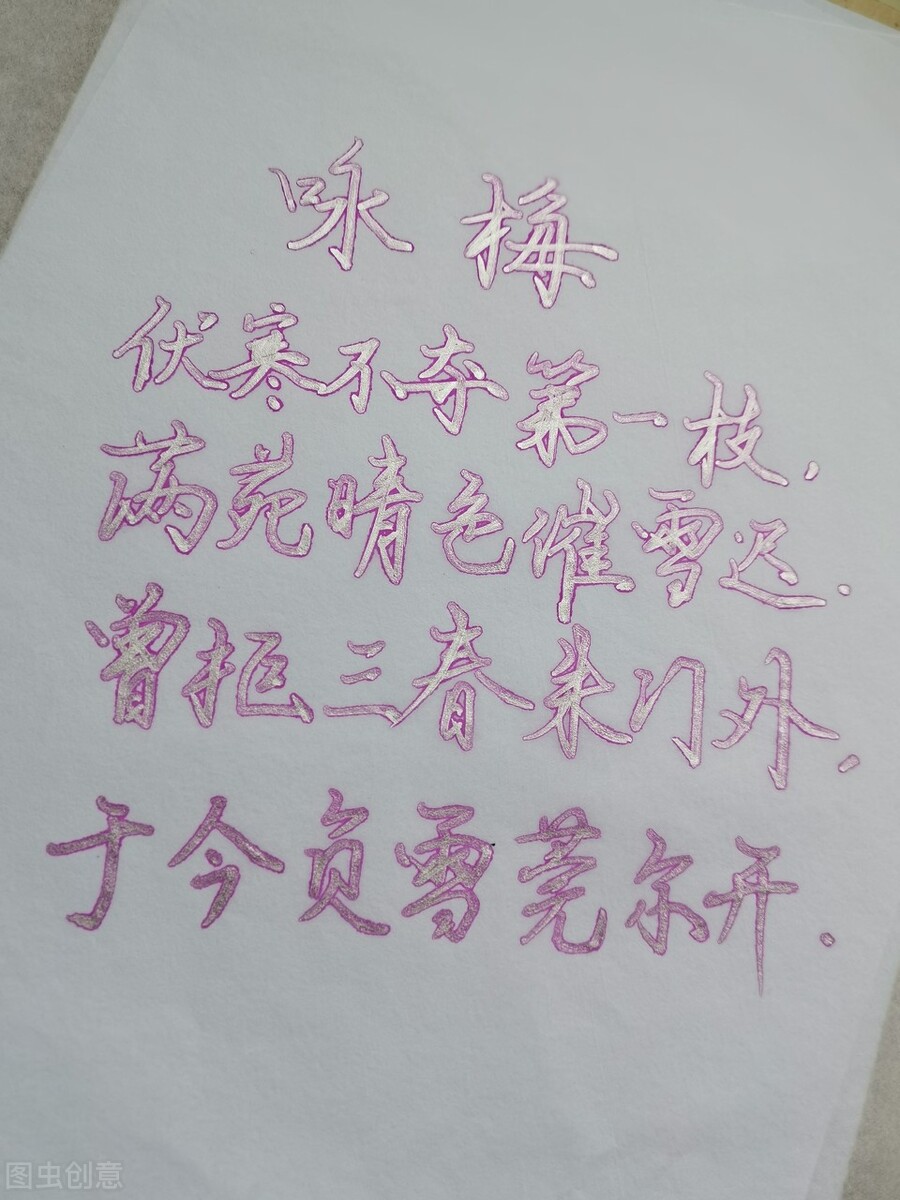 咏梅
伏寒不夺第一枝,
满苑晴色催雪迟.
曾拒三春朱门外.
于今负雪莞尔开.
图虫创意